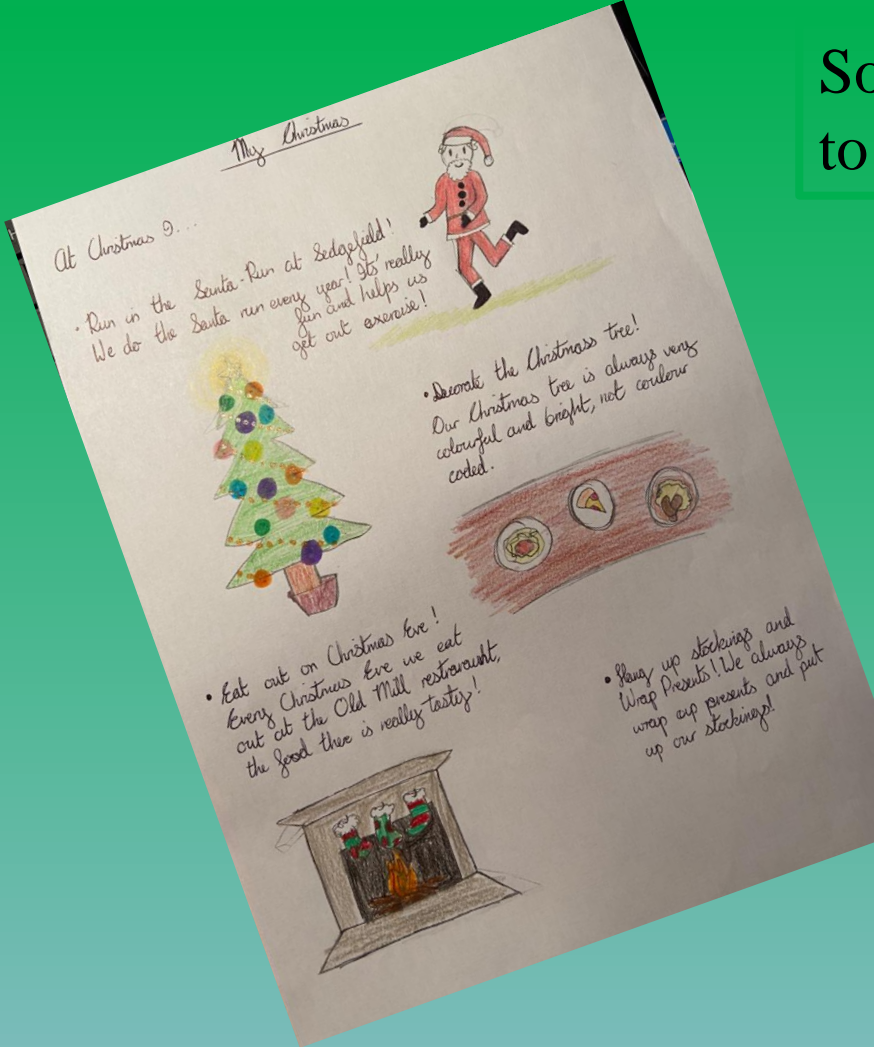 My Christmas
At Christmas I...
• Run in the Santa-Run at Sedgefield!
We do the Santa run every year! Its' really
fun and helps us
get out exercise!
• Decorate the Christmass tree!
Our Christmas tree is always very
colourful and bright, not coulour
coded.
• Eat out on Christmas Eve!
Every Christmas Eve we eat
out at the Old Mill restrauraunt,
the food there is really tasty!
• Hang up stockings and
Wrap Presents! We always
wrap up presents and put
up our stockings!
So
to